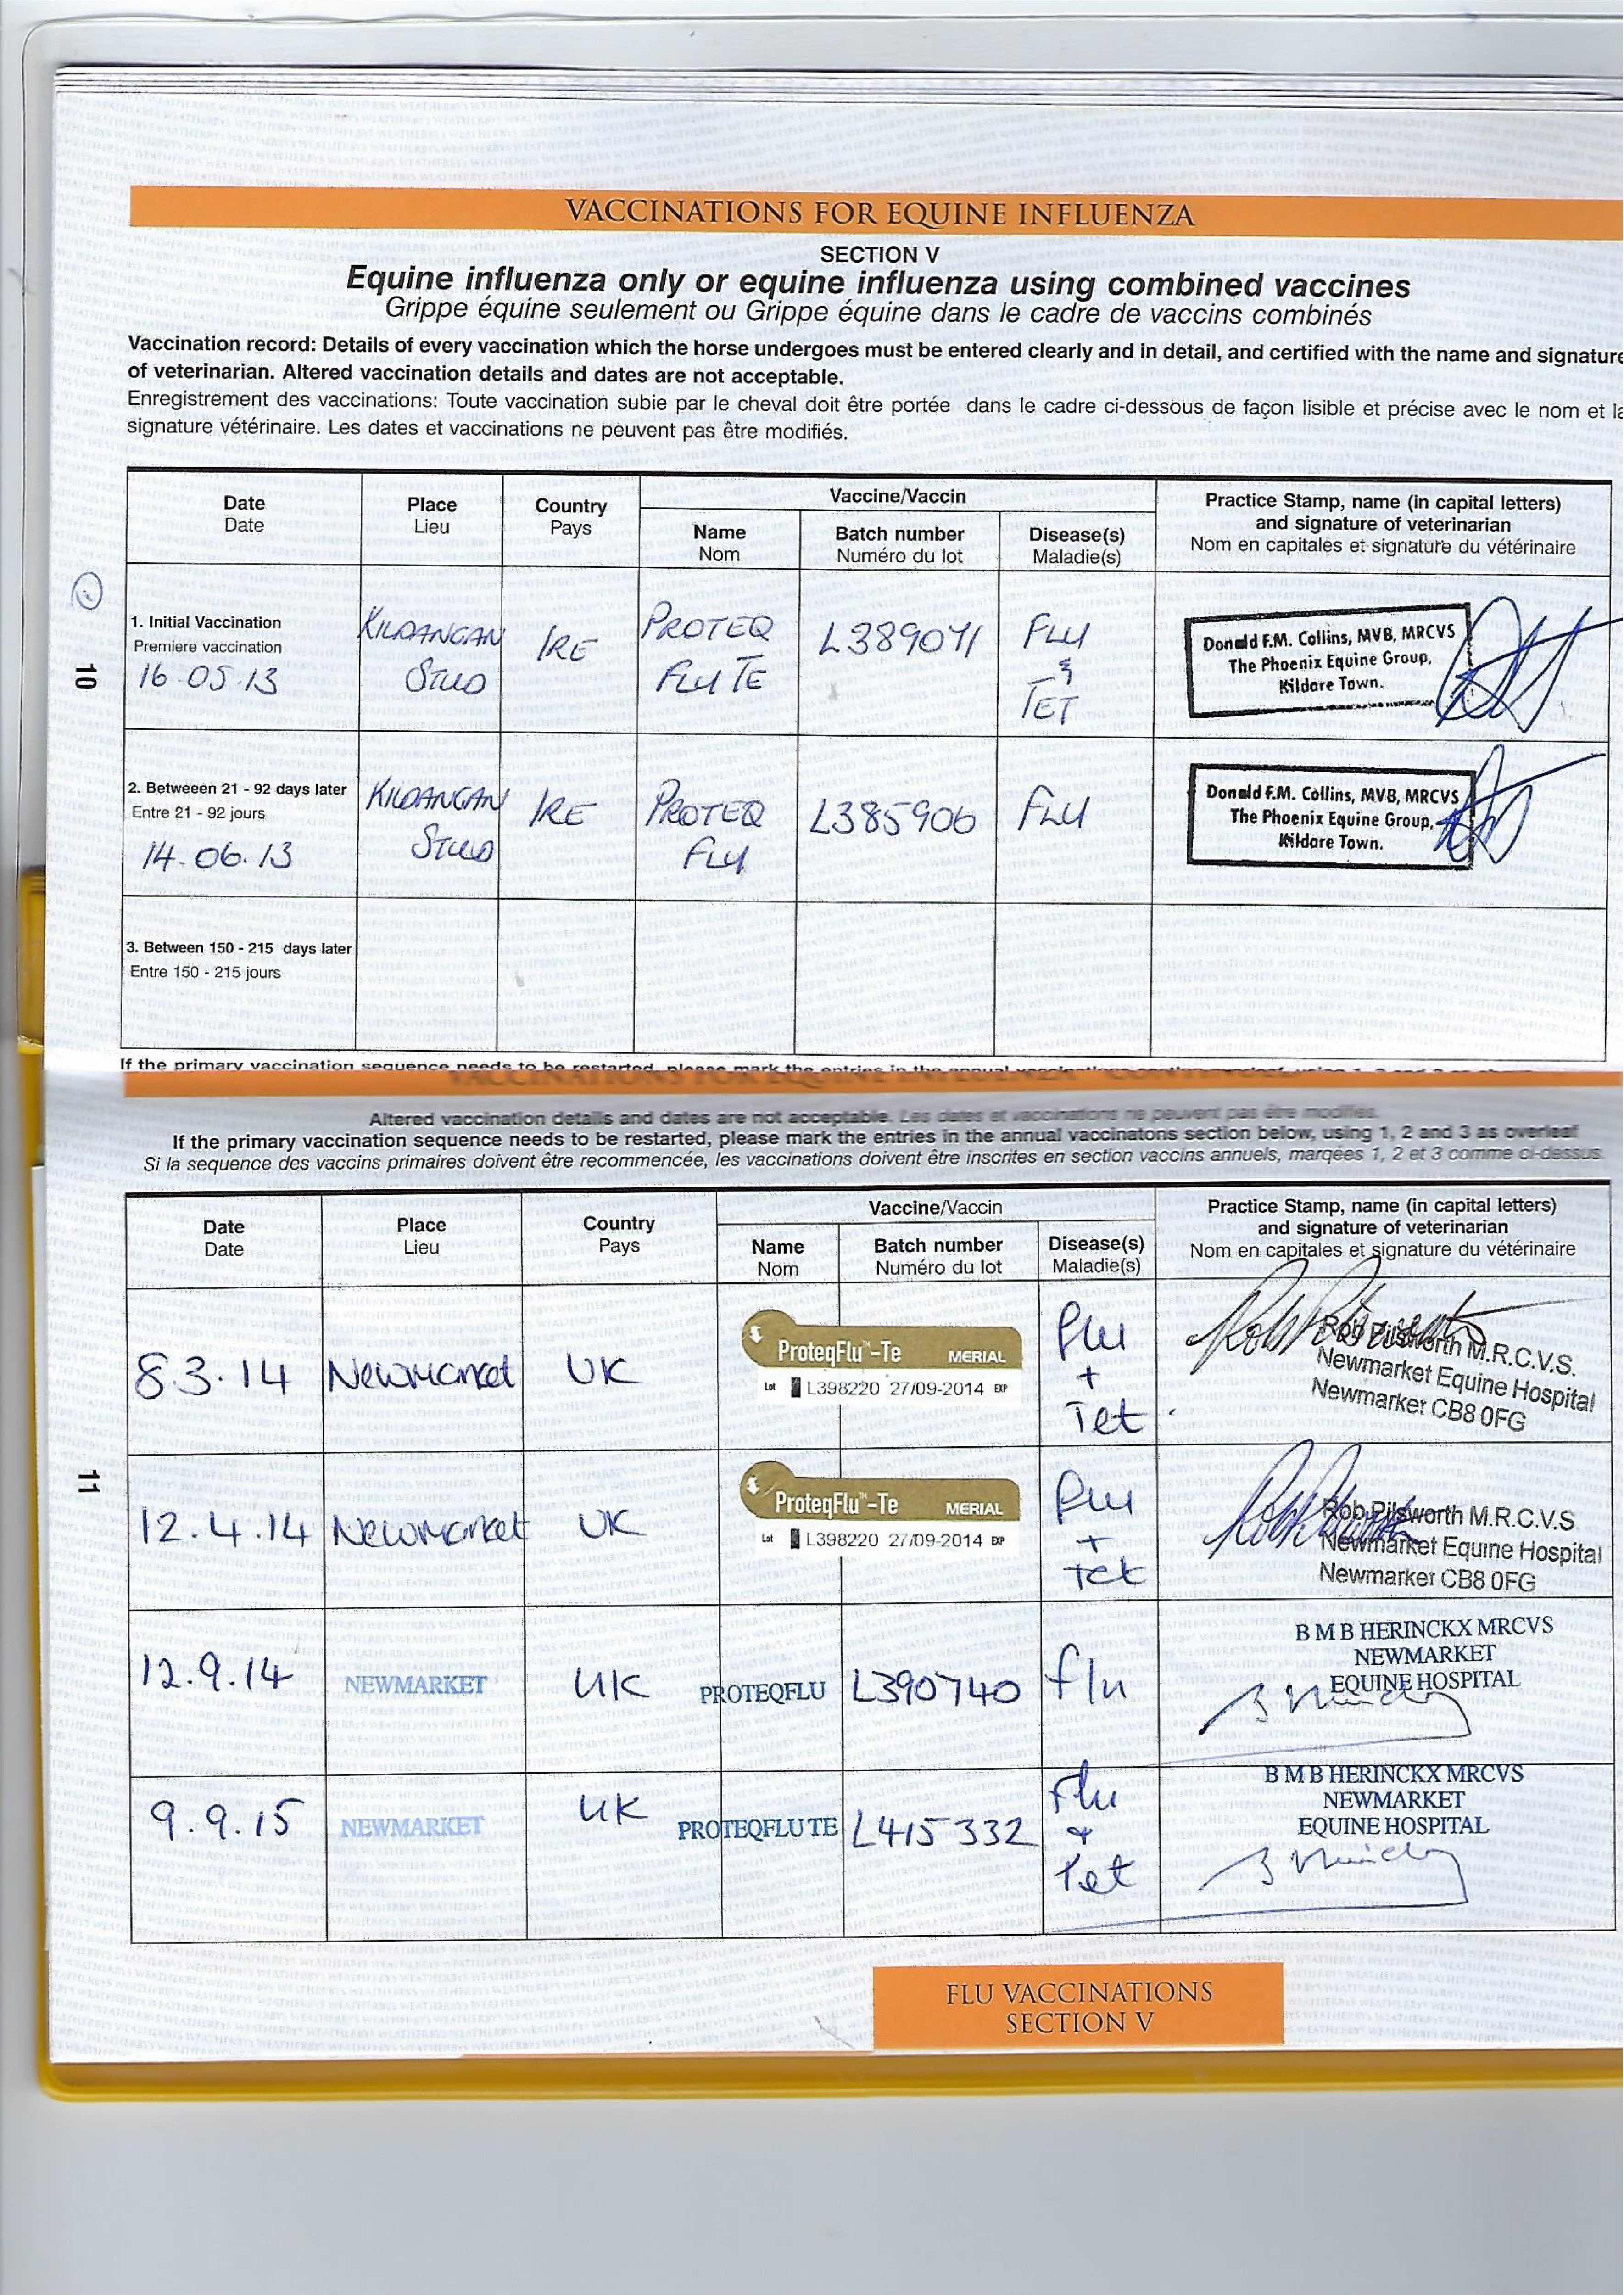 VACCINATIONS FOR EQUINE INFLUENZA
SECTION V
Equine influenza only or equine influenza using combined vaccines
Grippe équine seulement ou Grippe équine dans le cadre de vaccins combinés
Vaccination record: Details of every vaccination which the horse undergoes must be entered clearly and in detail, and certified with the name and signature
of veterinarian. Altered vaccination details and dates are not acceptable.
Enregistrement des vaccinations: Toute vaccination subie par le cheval doit être portée dans le cadre ci-dessous de façon lisible et précise avec le nom et la
signature vétérinaire. Les dates et vaccinations ne peuvent pas être modifiés.
Date
Date
Place
Lieu
Country
Pays
Vaccine/Vaccin
Name
Nom
Batch number
Numéro du lot
Disease(s)
Maladie(s)
Practice Stamp, name (in capital letters)
and signature of veterinarian
Nom en capitales et signature du vétérinaire
10
1. Initial Vaccination
Premiere vaccination
16.05.13
KILDANGAN
STUD
IRE
PROTEQ
FLU TE
L389071
FLU
&
TET
Donald F.M. Collins, MVB, MRCVS
The Phoenix Equine Group,
Kildare Town.
2. Betweeen 21 - 92 days later
Entre 21 - 92 jours
14.06.13
KILDANGAN
STUD
IRE
PROTEQ
FLU
L385906
FLU
Donald F.M. Collins, MVB, MRCVS
The Phoenix Equine Group,
Kildare Town.
3. Between 150 - 215 days later
Entre 150 - 215 jours
If the primary vaccination sequence needs to be restarted, please mark the entries in the annual
Altered vaccination details and dates are not acceptable. Les dates et vaccinations ne peuvent pas être modifiés.
If the primary vaccination sequence needs to be restarted, please mark the entries in the annual vaccinatons section below, using 1, 2 and 3 as overleaf
Si la sequence des vaccins primaires doivent être recommencée, les vaccinations doivent être inscrites en section vaccins annuels, marqées 1, 2 et 3 comme ci-dessus.
Date
Date
Place
Lieu
Country
Pays
Vaccine/Vaccin
Name
Nom
Batch number
Numéro du lot
Disease(s)
Maladie(s)
Practice Stamp, name (in capital letters)
and signature of veterinarian
Nom en capitales et signature du vétérinaire
11
8.3.14
Newmarket
UK
ProteqFlu™-Te MERIAL
Lot L398220 27/09-2014 EXP
Flu
+
Tet
Rob Pilsworth M.R.C.V.S.
Newmarket Equine Hospital
Newmarket CB8 0FG
12.4.14
Newmarket
UK
ProteqFlu™-Te MERIAL
Lot L398220 27/09-2014 EXP
Flu
+
Tet
Rob Pilsworth M.R.C.V.S
Newmarket Equine Hospital
Newmarket CB8 0FG
12.9.14
NEWMARKET
UK
PROTEQFLU
L390740
flu
B M B HERINCKX MRCVS
NEWMARKET
EQUINE HOSPITAL
9.9.15
NEWMARKET
UK
PROTEQFLU TE
L415332
Flu
&
Tet
B M B HERINCKX MRCVS
NEWMARKET
EQUINE HOSPITAL
FLU VACCINATIONS
SECTION V